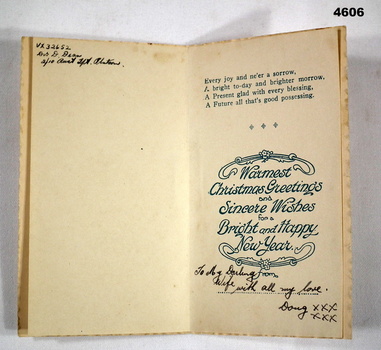 4606
VX32652
2/10 Aust
Every joy and ne'er a sorrow,
A bright to-day and brighter morrow,
A Present glad with every blessing,
A Future all that's good possessing.
Warmest
Christmas Greetings
and
Sincere Wishes
for a
Bright and Happy
New Year.
To My Darling from
Wife with all my love.
Doug XXX
XXX